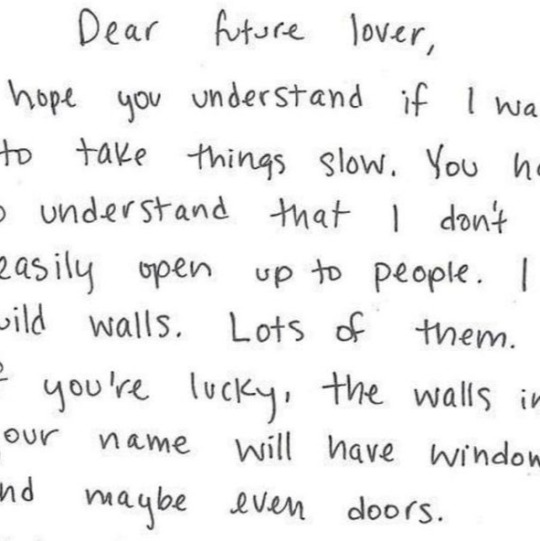 Dear future lover,
hope you understand if I wa
to take things slow. You h
understand that I don't
easily open up to people. I
uild walls. Lots of them.
you're lucky, the walls in
our name will have window
nd maybe even doors.